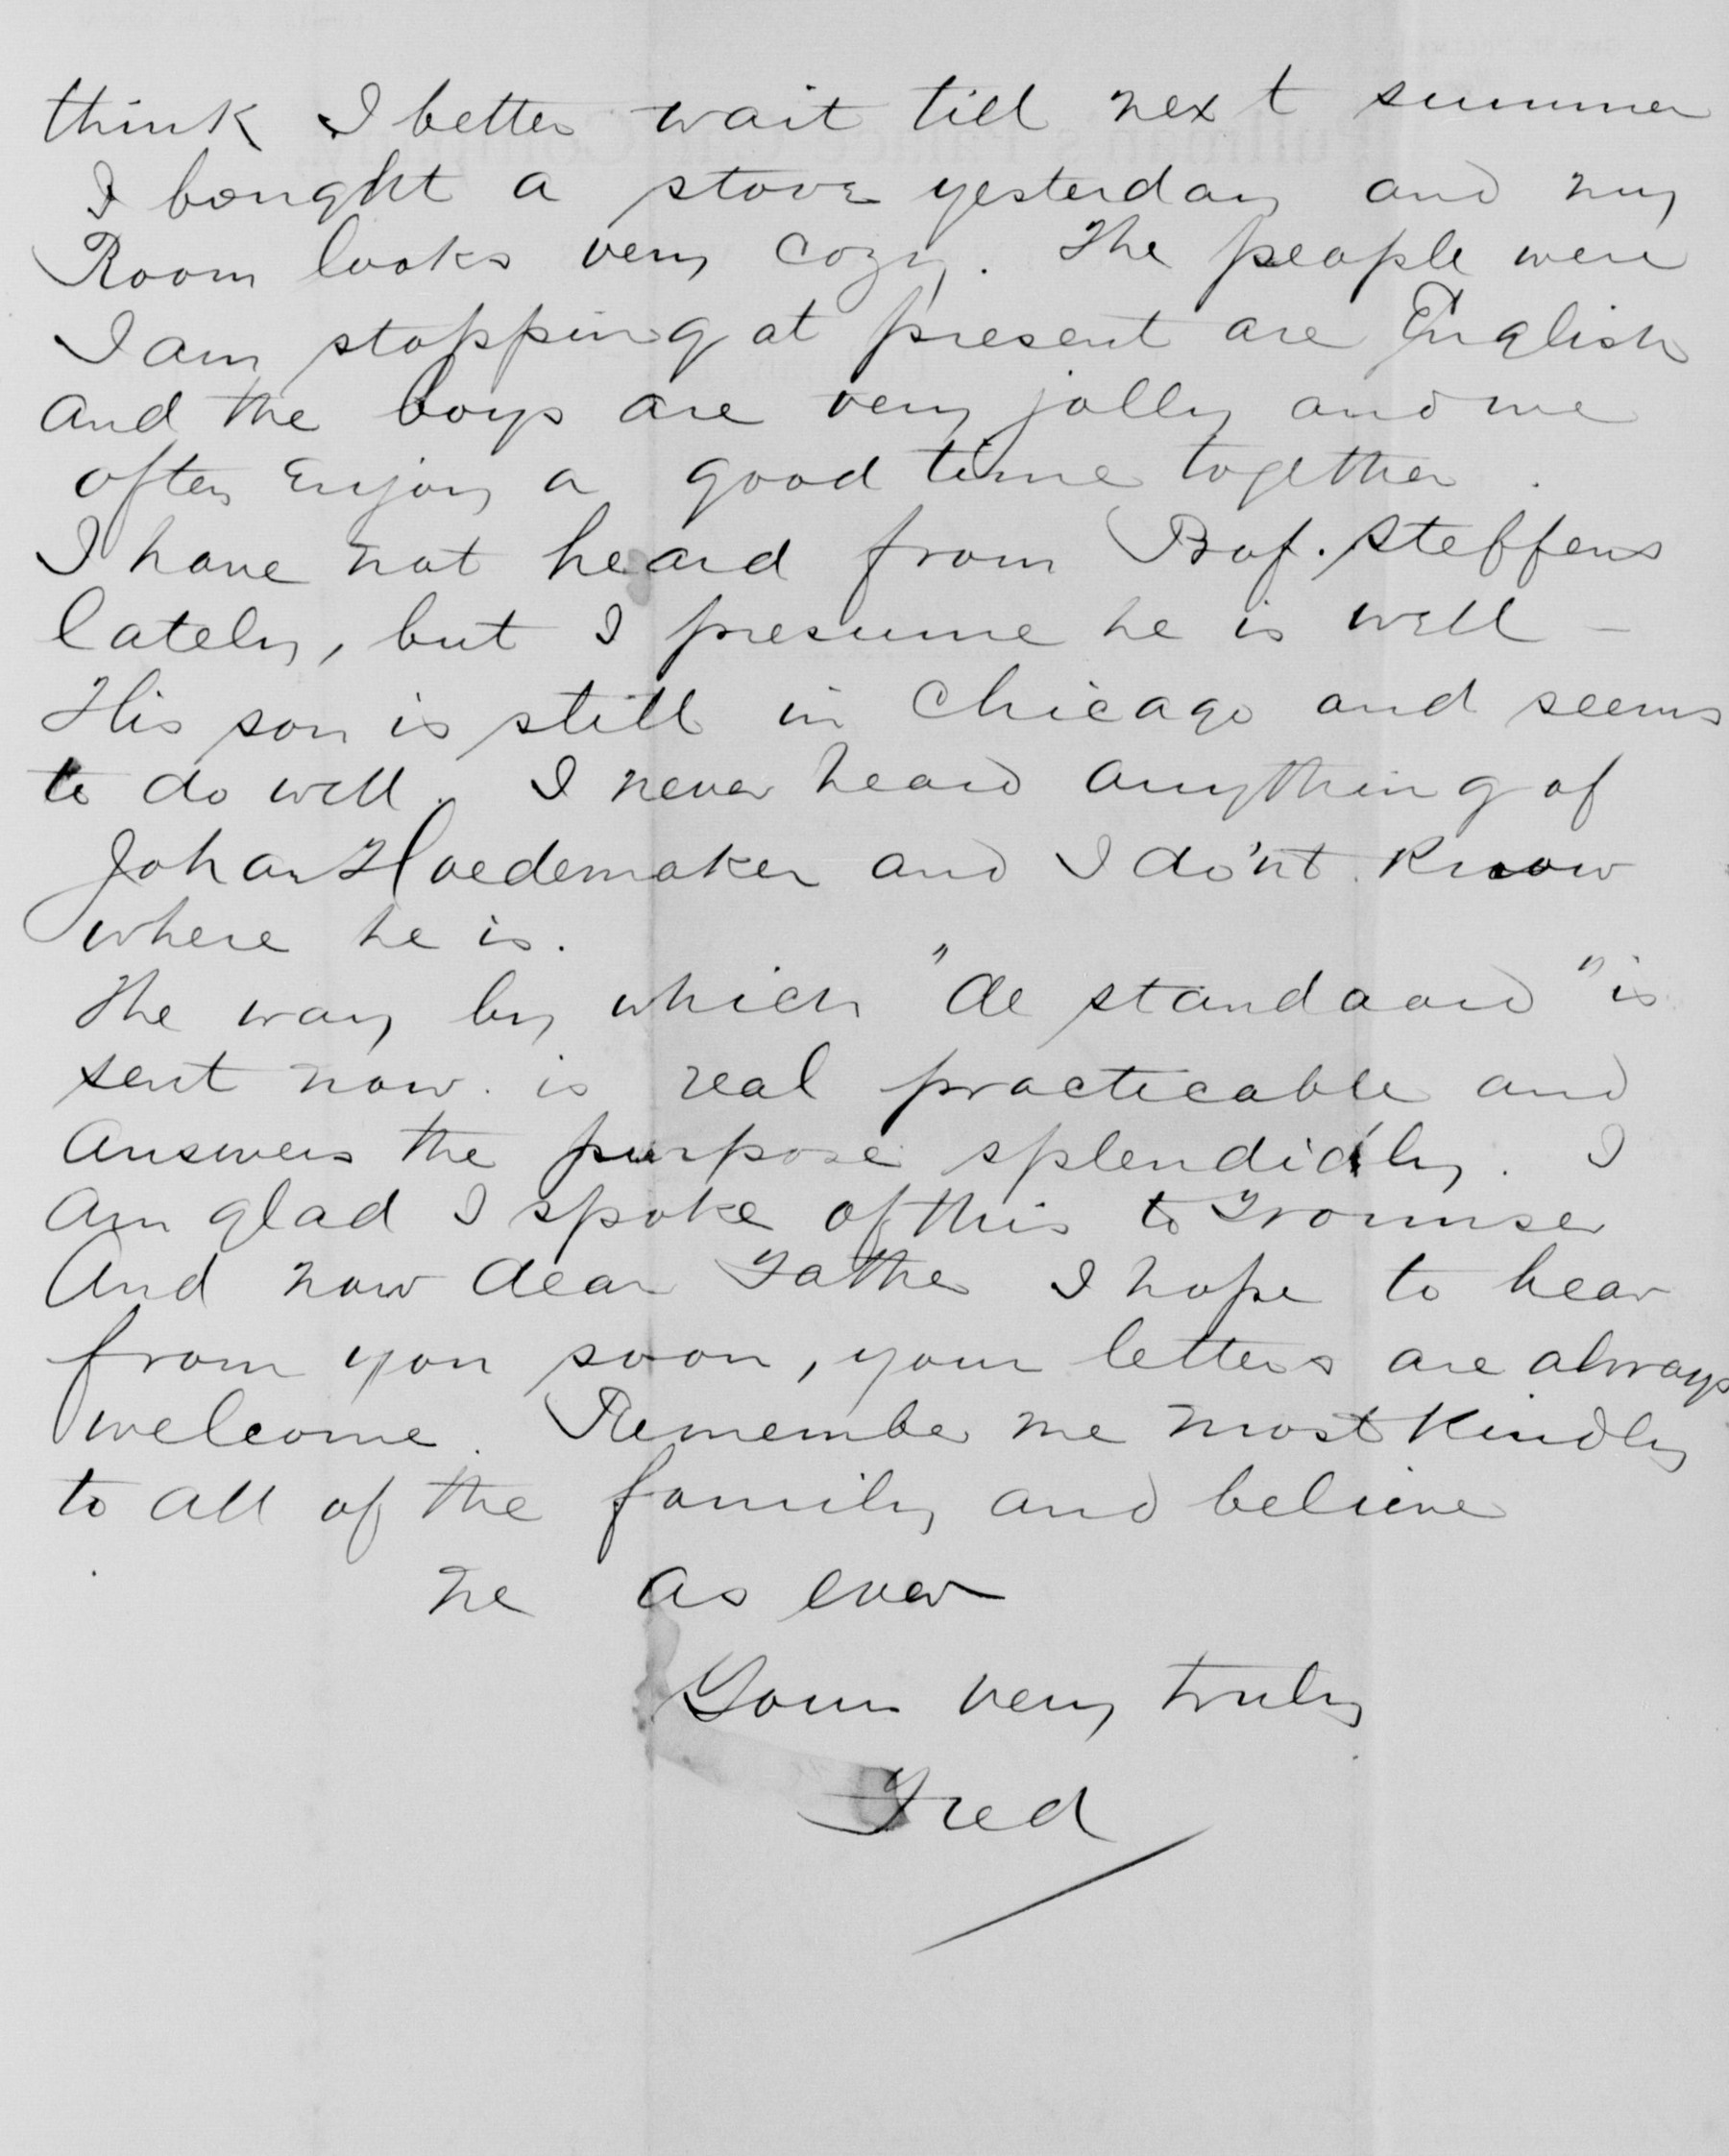 think I better wait till next summer
I bought a stove yesterday and my
Room looks very cozy. The people were
I am stopping at present are English
and the boys are very jolly and we
often enjoy a good time together.
I have not heard from Prof. Steffens
lately, but I presume he is well –
His son is still in Chicago and seems
to do well. I never heard anything of
Johan Hoedemaker and I do'nt know
where he is.
The way by which "de standaard" is
sent now is real practicable and
answers the purpose splendidly. I
am glad I spoke of this to
And now dear Father I hope to hear
from you soon, your letters are always
welcome. Remember me most kindly
to all of the family and believe
me as ever
Yours very truly
Fred